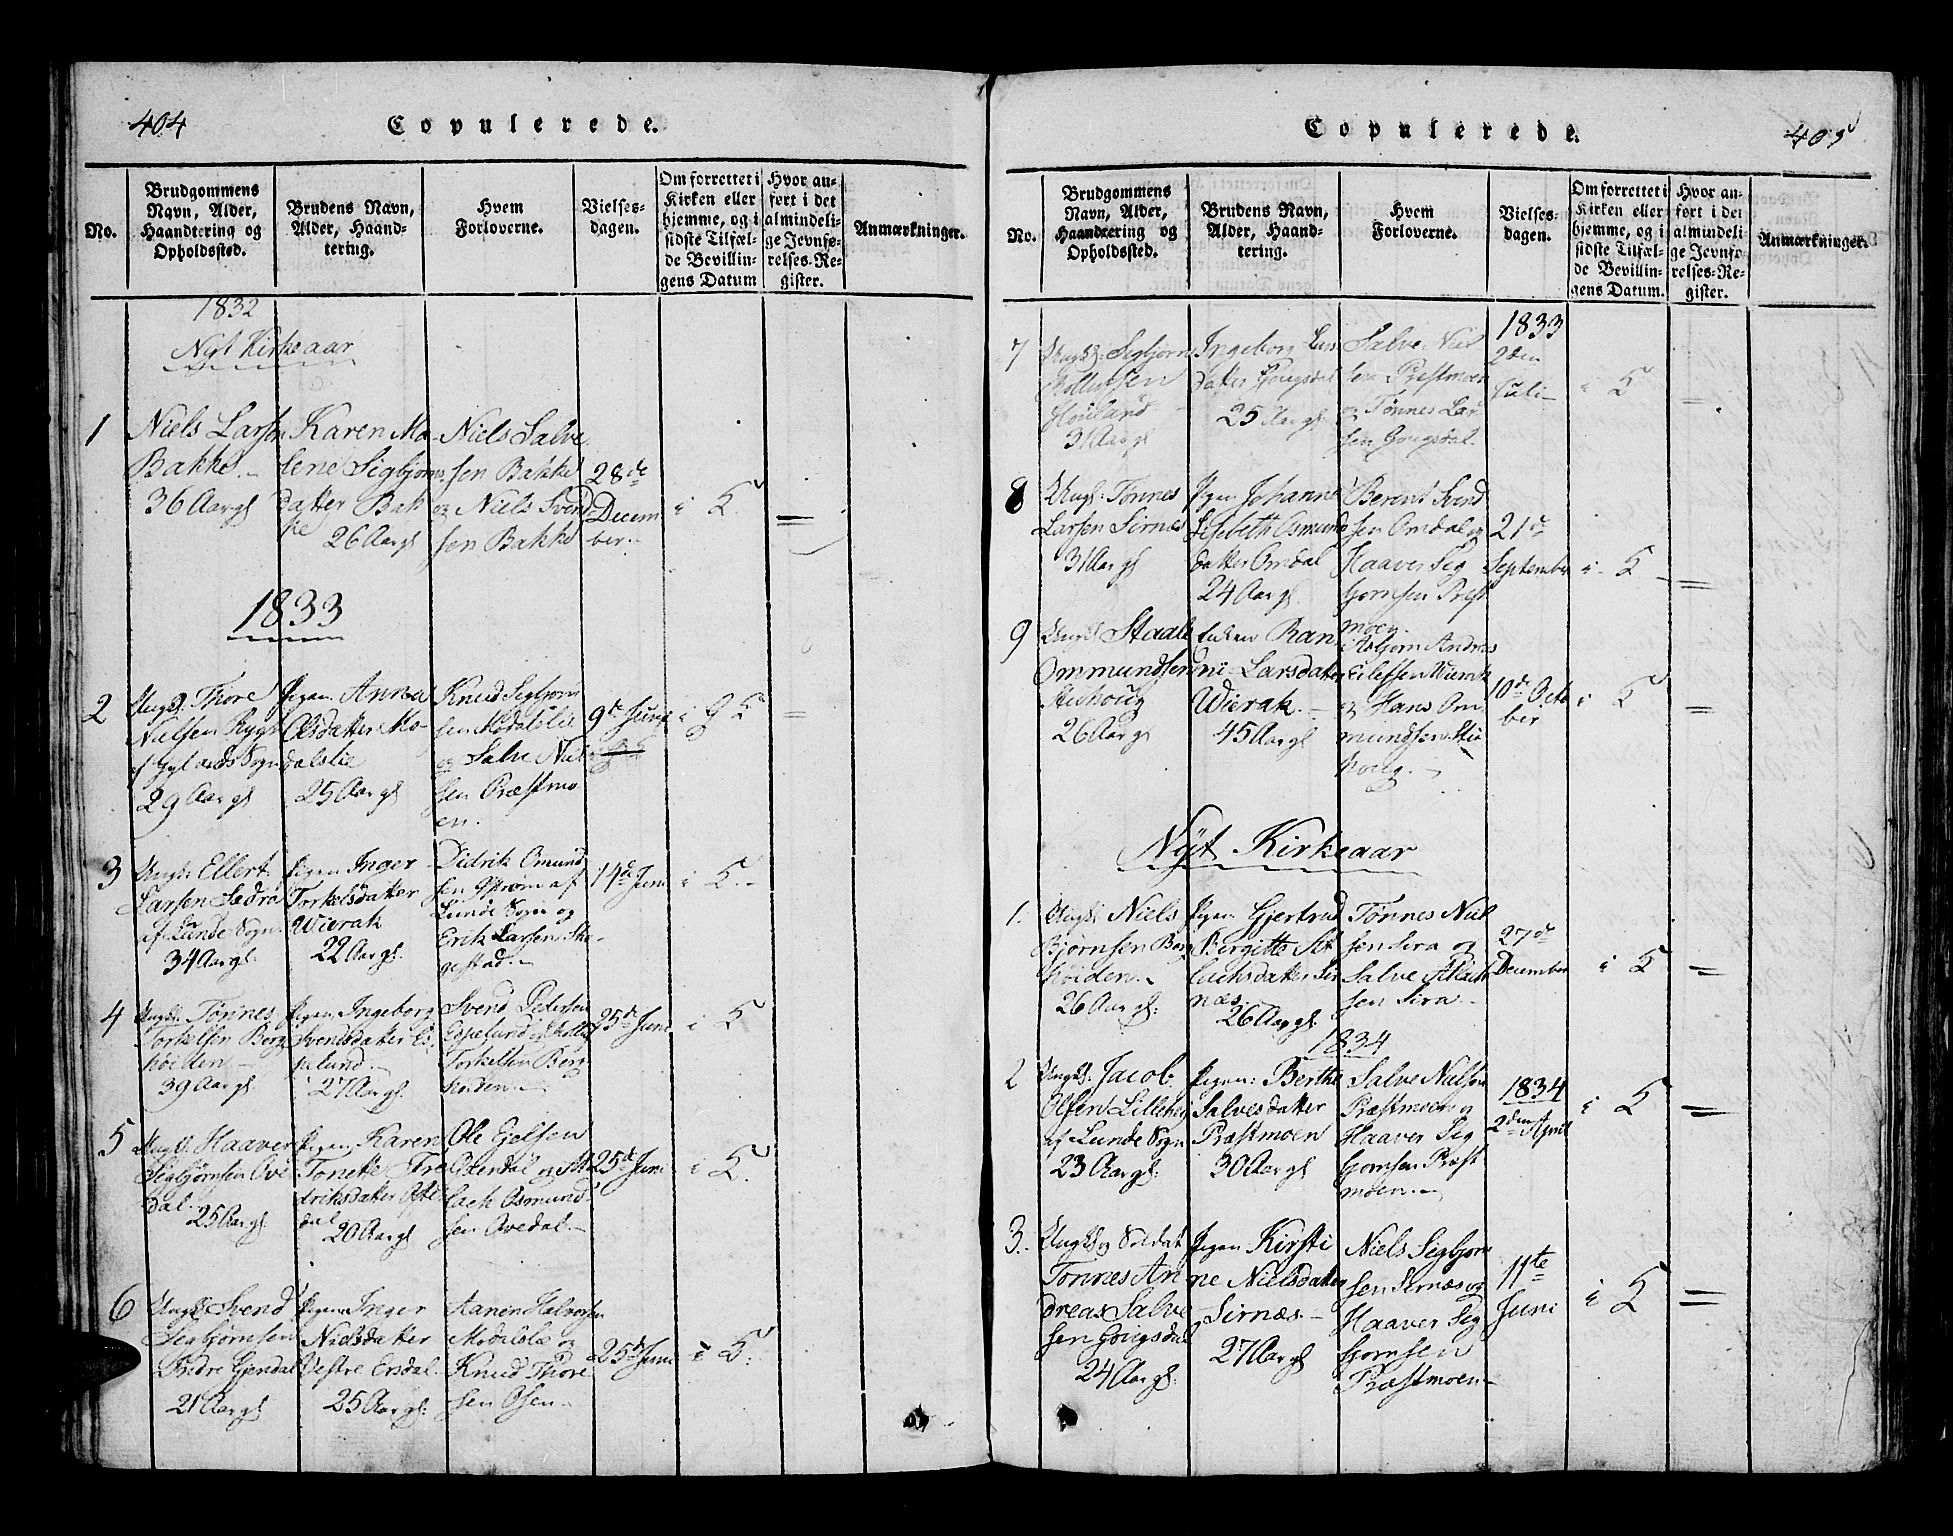 404
Copulerede.
No.
Brudgommens
Navn, Alder,
Haandtering og
Opholdssted.
Brudens Navn,
Alder, Haand-
tering.
Hvem
Forloverne.
Vielses-
dagen.
Om forrettet i
Kirken eller
hjemme, og i
sidste Tilfæl-
de Bevillin-
gens Datum
Hvor an-
ført i det
almindeli-
ge Jevnfø-
relses-Re-
gister.
Anmærkninger.
1832
Nyt Kirkeaar
1
Niels Larsen
Bakke
36 Aar gl
Karen Ma-
lene Sigbjørns
datter Bak
ke
26 Aar gl
Niels Salve
sen Bakke
og Niels Svend
sen Bakke
28de
Decem
ber
i K
1833
2
Ungk. Thore
Nielsen
af Gylands Sogn
29 Aar gl
Pigen Anna
Olsdatter Mo-
dalslie
25 Aar gl
Knud Sigbjørn
sen Modalslie
og Salve Niel
sen Præstmo
en.
9de Juni
i K
3
Ungk. Ellert
Larsen
af Lunde Sogn
34 Aar gl.
Pigen Inger
Torkelsdatter
Wierak
22 Aar gl.
Didrik Omund
sen af
Lunde Sogn og
Erik Larsen
gestad
14de Juni
i K
4
Ungk. Tønnes
Torkelsen Berg
høiden
39 Aar gl
Pigen Ingeborg
Svendsdatter Es
pelund
27 Aar gl.
Svend Pedersen
Espelund og
Torkelsen Berg
høiden
25de Juni
i K
5
Ungk. Haaver
Sigbjørnsen Ove
dal
25 Aar gl
Pigen Karen
Tonette Fre
driksdatter
dal
20 Aar gl
Ole Ejelsen
og At
lach Osmund
sen Ovedal
25de Juni
i K
6
Ungk. Svend
Sigbjørnsen
Indre Gjendal
21 Aar gl
Pigen Inger
Nielsdatter
Vestre Ersdal
25 Aar gl.
Aanen Halvorsen
Modalslie og
Knud Thore
sen Osen
25de Juni
i K
Copulerede.
405
No.
Brudgommens
Navn, Alder,
Haandtering og
Opholdssted.
Brudens Navn,
Alder, Haand-
tering.
Hvem
Forloverne.
Vielses-
dagen.
Om forrettet i
Kirken eller
hjemme, og i
sidste Tilfæl-
de Bevillin-
gens Datum.
Hvor an-
ført i det
almindeli-
ge Jevnfø-
relses-Re-
gister.
Anmærkninger.
7
Ungk. Sigbjørn
Houland
31 Aar gl
Ingeborg Lars
datter Gougsdal
25 Aar gl
Salve Niel
sen Præstmoen
og Tønnes Lar
sen Gougsdal
1833
2den
Juli
i K
8
Ungk. Tønnes
Larsen Sirnes
31 Aar gl
Pigen Johanne
Lisebeth Osmund
datter Omdal
24 Aar gl.
Berent Svend
sen Omdal og
Haaver Sig
bjørnsen Præst
moen
21de
September
i K
9
Ungk. Staale
Ommundsen
26 Aar gl
Enken Ran
ni Larsdatter
Wierak
45 Aar gl
Asbjørn Andreas
Eilefsen Wierak
og Hans Om
mundsen
10de Octo
ber
i K
Nyt Kirkeaar
1.
Ungk. Niels
Bjørnsen Berg
høiden
26 Aar gl.
Pigen Gjertrud
Bergitte At
lachsdatter Sir
næs
26 Aar gl.
Tønnes Niel
sen Sira og
Salve Atlach
sen Sira
27de
December
i K
1834
2
Ungk. Jacob
Olsen
af Lunde Sogn
23 Aar gl.
Pigen Berthe
Salvesdatter
Præstmoen
30 Aar gl
Salve Nielsen
Præstmoen og
Haaver Sig
bjørnsen Præst
moen
1834
2den April
i K
3.
Ungk. og Soldat
Tønnes An
dreas Salve
sen Gougsdal
24 Aar gl.
Pigen Kirsti
ne Nielsdatter
Sirnæs
27 Aar gl
Niels Sigbjørn
sen Sirnæs og
Haaver Sig
bjørnsen
Præstmoen
11te
Juni
i K